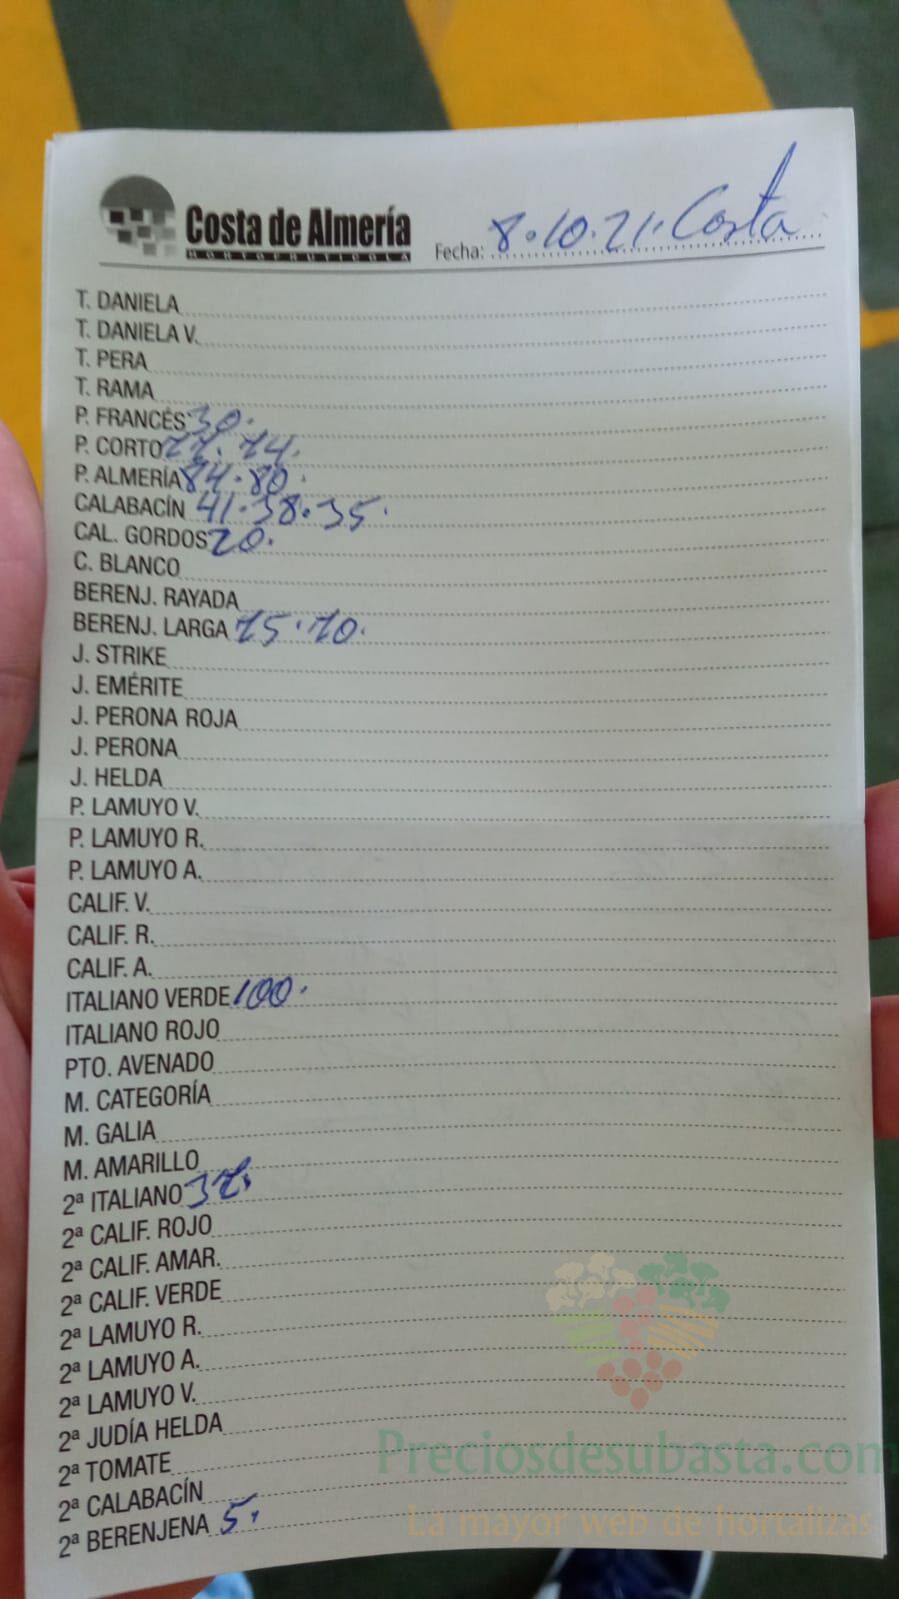 Costa de Almería
HORTOFRUTICOLA
Fecha: 8.10.21. Costa
T. DANIELA
T. DANIELA V.
T. PERA
T. RAMA
P. FRANCÉS 30.
P. CORTO 77. 74.
P. ALMERÍA 84. 80.
CALABACÍN 41. 38. 35.
CAL. GORDOS 20.
C. BLANCO
BERENJ. RAYADA
BERENJ. LARGA 15. 10.
J. STRIKE
J. EMÉRITE
J. PERONA ROJA
J. PERONA
J. HELDA
P. LAMUYO V.
P. LAMUYO R.
P. LAMUYO A.
CALIF. V.
CALIF. R.
CALIF. A.
ITALIANO VERDE 100.
ITALIANO ROJO
PTO. AVENADO
M. CATEGORÍA
M. GALIA
M. AMARILLO
2ª ITALIANO 37.
2ª CALIF. ROJO
2ª CALIF. AMAR.
2ª CALIF. VERDE
2ª LAMUYO R.
2ª LAMUYO A.
2ª LAMUYO V.
2ª JUDÍA HELDA
2ª TOMATE
2ª CALABACÍN
2ª BERENJENA 5.
Preciosdesubasta.com
La mayor web de hortalizas